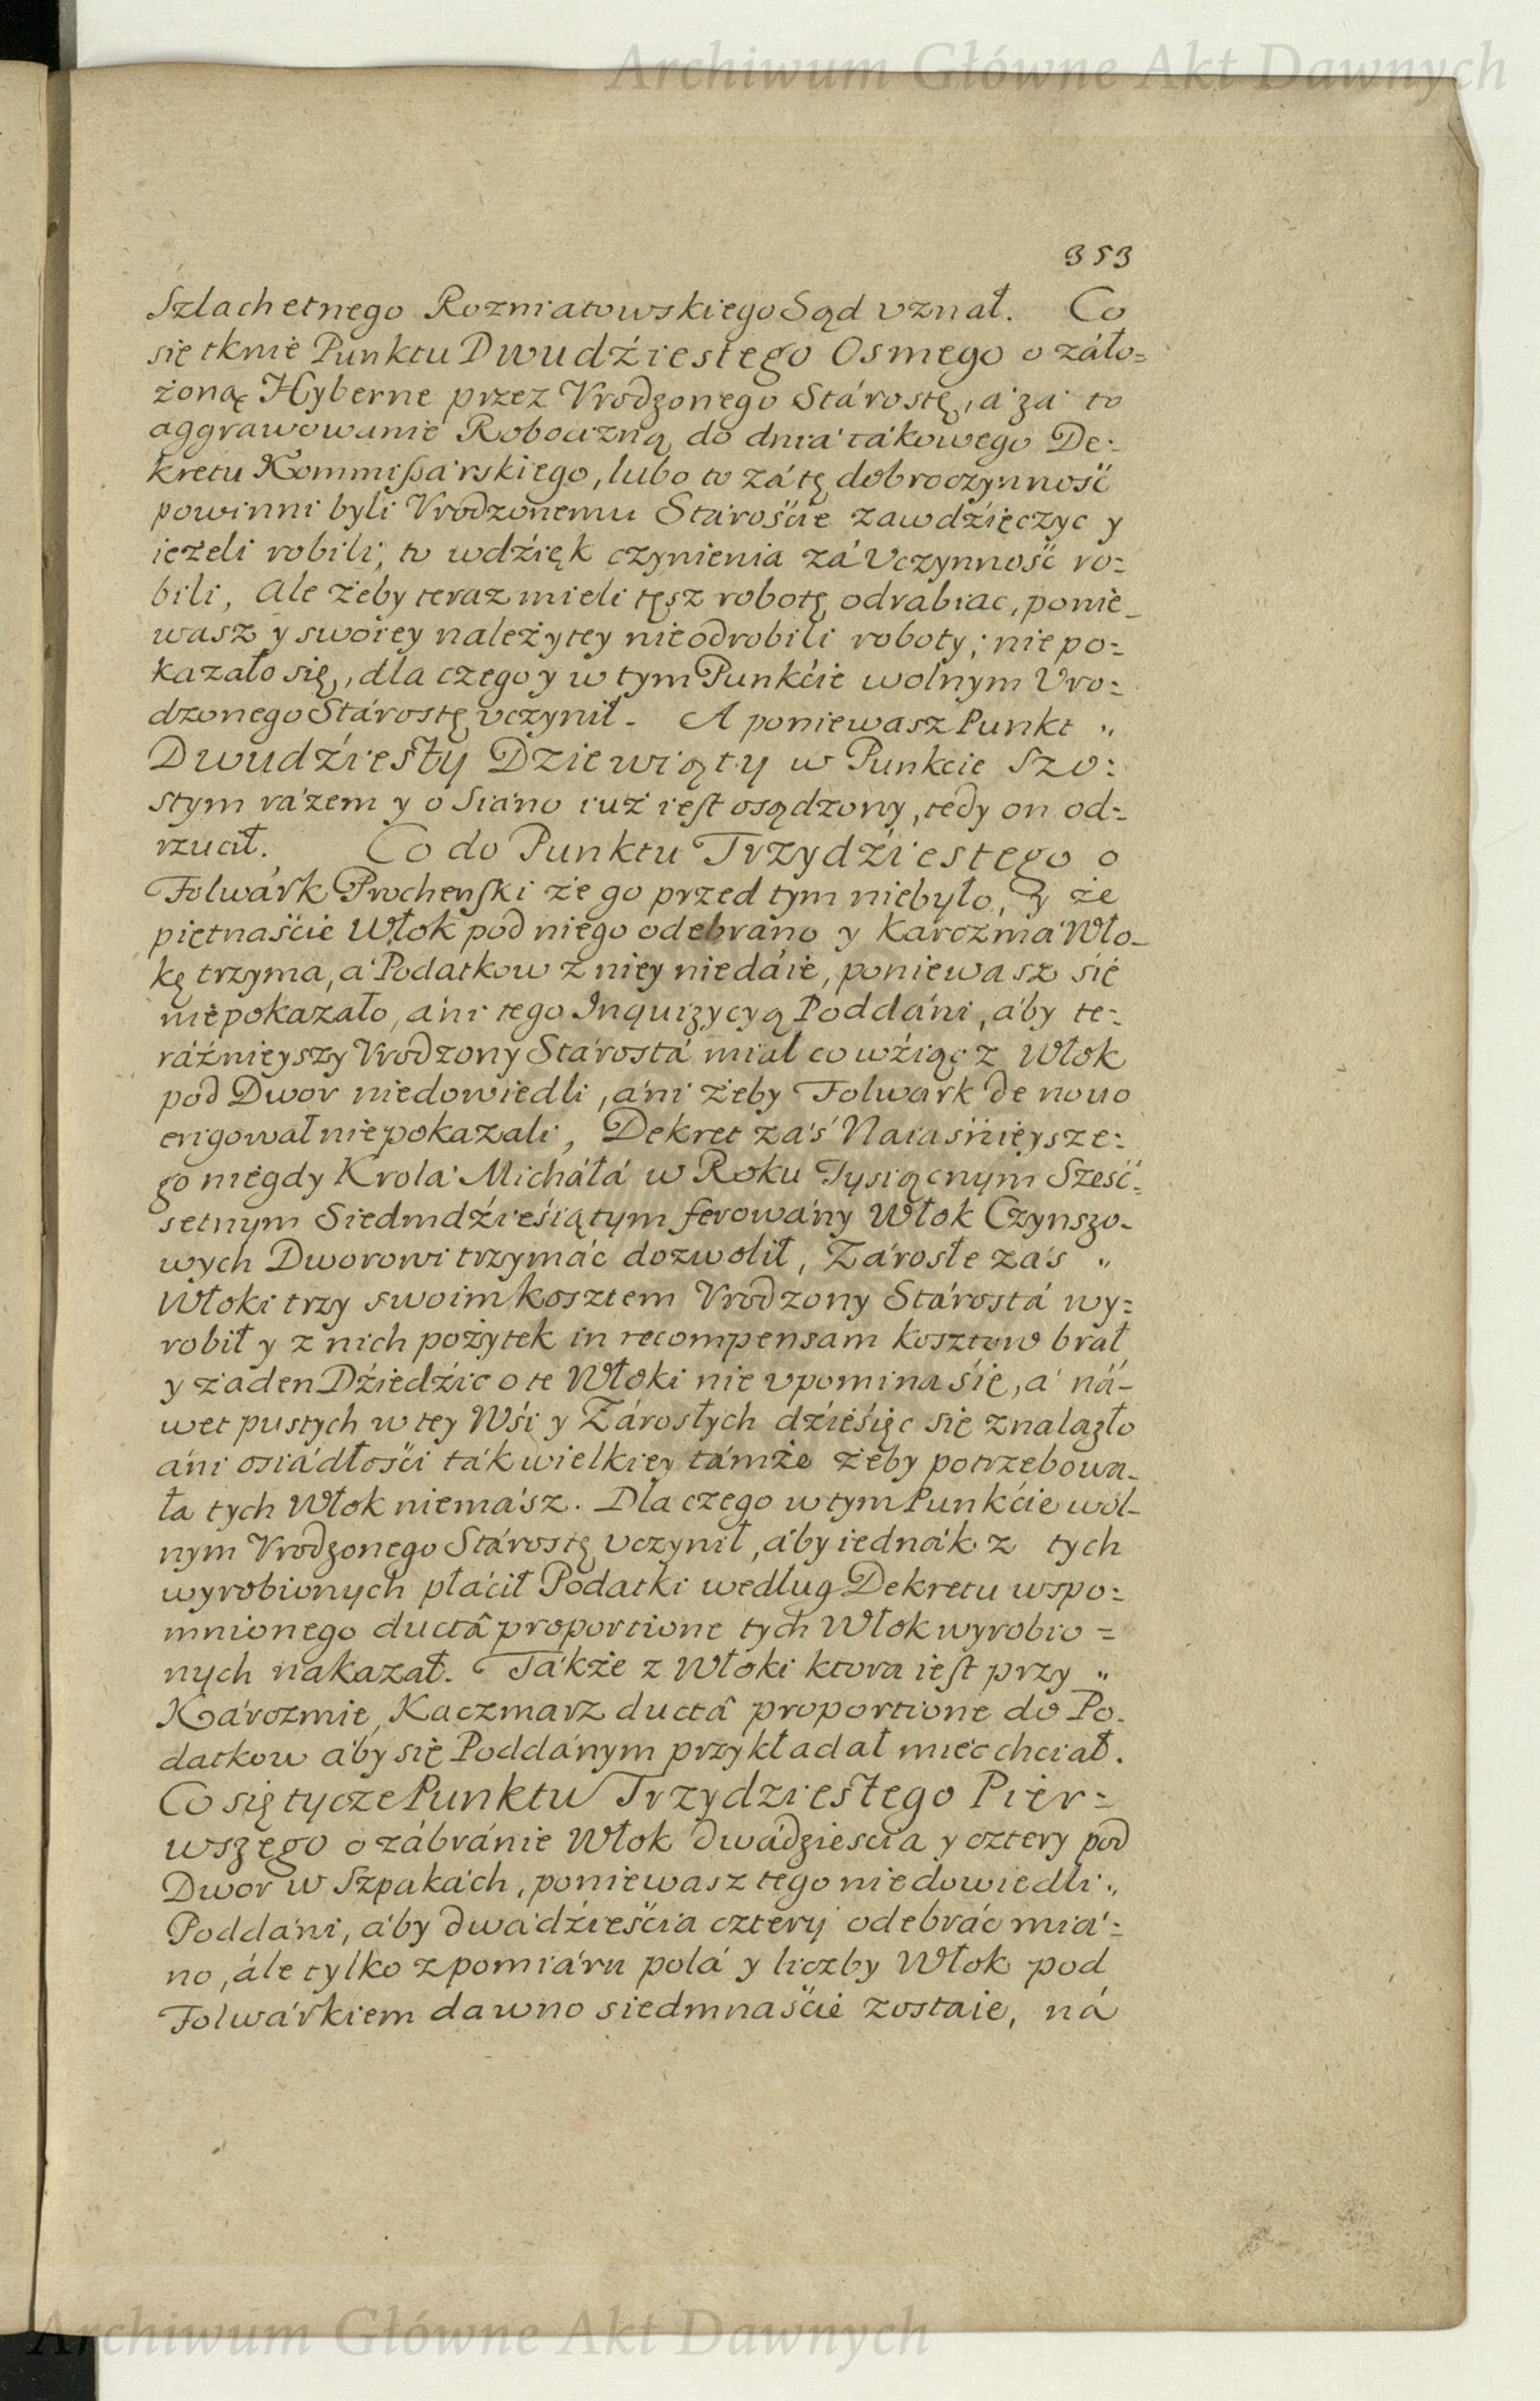 Archiwum Główne Akt Dawnych
353
Szlachetnego Rozniatowskiego Sąd vznał. Co
się tknie Punktu Dwudźiestego Osmego o záło=
żoną Hyberne przez Vrodzonego Stárostę, á za to
aggrawowanie Robocizną do dnia tákowego De:
kretu Kommißárskiego, lubo to zá tę dobroczynność
powinni byli Vrodzonemu Staroście zawdźięczyc y
ieżeli robili, to wdźięk czynienia zá Vczynność ro=
bili, Ale żeby teraz mieli tęsz robotę odrabiac, ponie_
wasz y swoiey należytey nieodrobili roboty; nie po=
kazało się, dla czego y w tym Punkćie wolnym Vro=
dzonego Stárostę vczynił. A poniewasz Punkt "
Dwudźiesty Dziewiąty w Punkcie Szo:
stym rázem y o Siáno iuż iest osądzony, tedy on od=
rzucił. Co do Punktu Trzydźiestego o
Folwárk Prochenski że go przed tym niebyło, y że
piętnaście Włok pod niego odebráno y Karczmá Wło_
kę trzyma, á Podatkow z niey niedáie, poniewasz się
niepokazało, áni tego Inquizycyą Poddáni, áby te=
ráźnieyszy Vrodzony Stárostá miał co wźiąc z Włok
pod Dwor niedowiedli, áni żeby Folwark de nouo
erigował niepokazali, Dekret záś Naiaśnieysze=
go niegdy Krolá Micháłá w Roku Tysiącnym Sześć=
setnym Siedmdźieśiątym ferowány Włok Czynszo-
wych Dworowi trzymáć dozwolił, Zárosłe záś "
Włoki trzy swoim kosztem Vrodzony Stárostá wy=
robił y z nich pożytek in recompensam kosztow brał
y żaden Dźiedźic o te Włoki nie vpomina śię, á ná-
wet pustych w tey Wśi y Zárosłych dźieśięc się znalazło
áni osiádłości ták wielkiey támże żeby potrzebowa-
ła tych Włok niemász. Dla czego w tym Punkćie wol-
nym Vrodzonego Stárostę vczynił, áby iednák z tych
wyrobionych płácił Podatki według Dekretu wspo=
mnionego ductâ proportione tych Włok wyrobio =
nych nakazał. Tákże z Włoki ktora iest przy "
Kárczmie, Kaczmarz ductâ proportione do Po-
datkow áby się Poddánym przykładał mieć chciał.
Co się tycze Punktu Trzydziestego Pier=
wszego o zábránie Włok dwádziescia y cztery pod
Dwor w Szpakách, poniewasz tego niedowiedli "
Poddáni, áby dwádźieścia cztery odebráć miá=
no, ále tylko z pomiáru polá y liczby Włok pod
Folwárkiem dawno siedmnaście zostaie, ná
Archiwum Główne Akt Dawnych